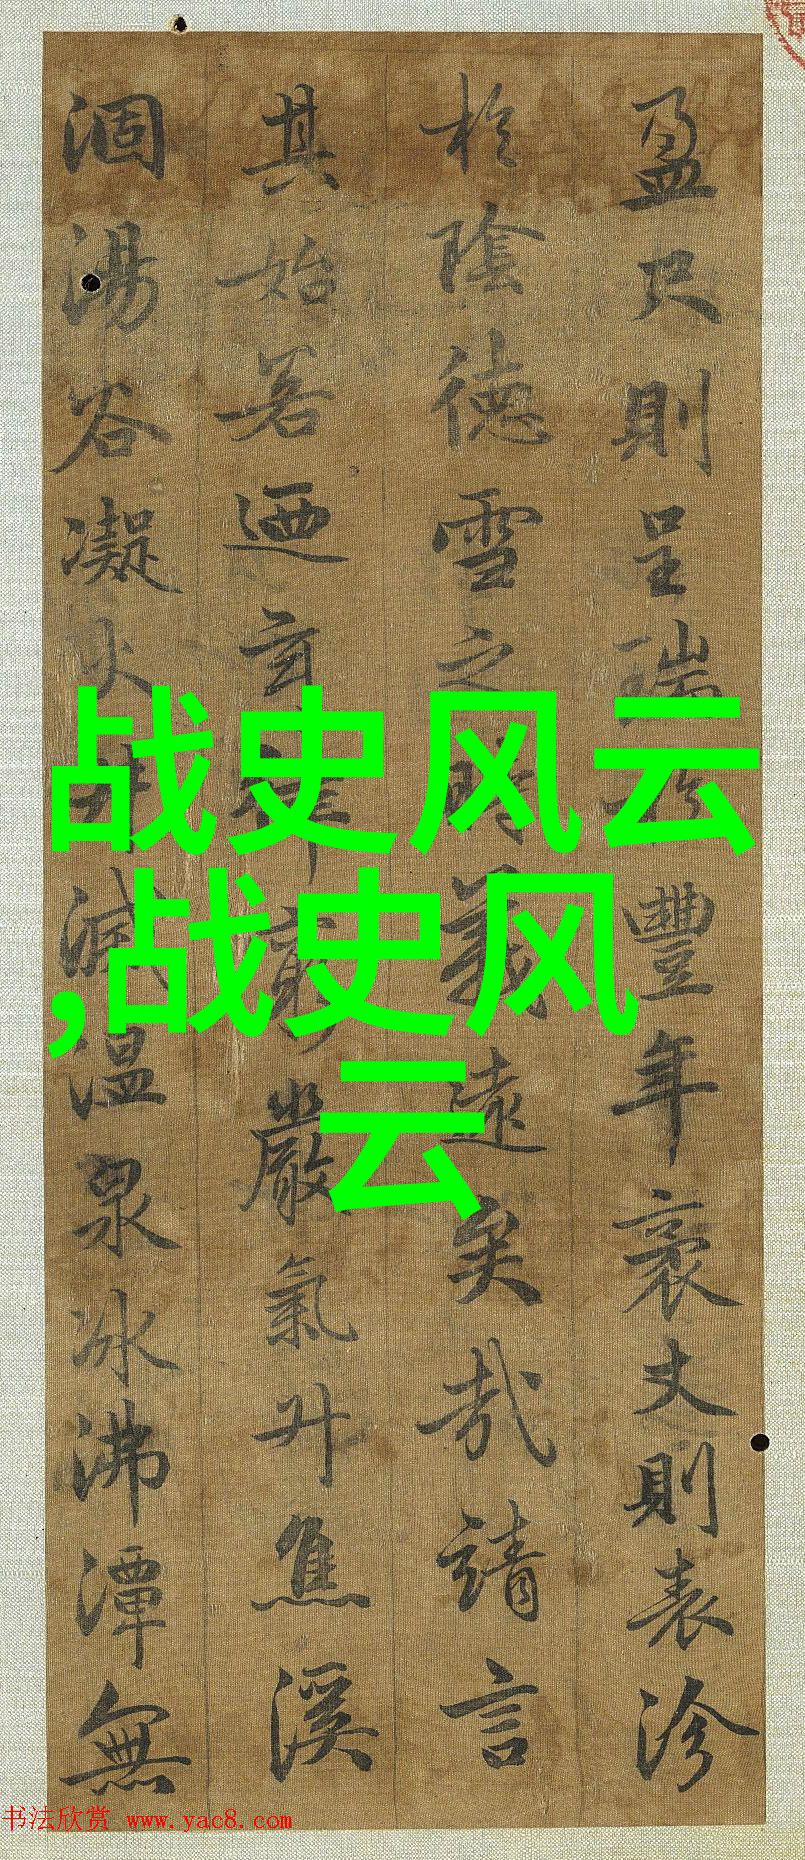 盈尺則呈瑞於豐年袤丈則表沴
於陰德雪之時義遠矣哉請言
其始若迺玄律窮嚴氣升焦溪
涸湯谷凝火井滅溫泉冰沸潭無
战史风云
,战史风
云
书法欣赏 www.yac8.com